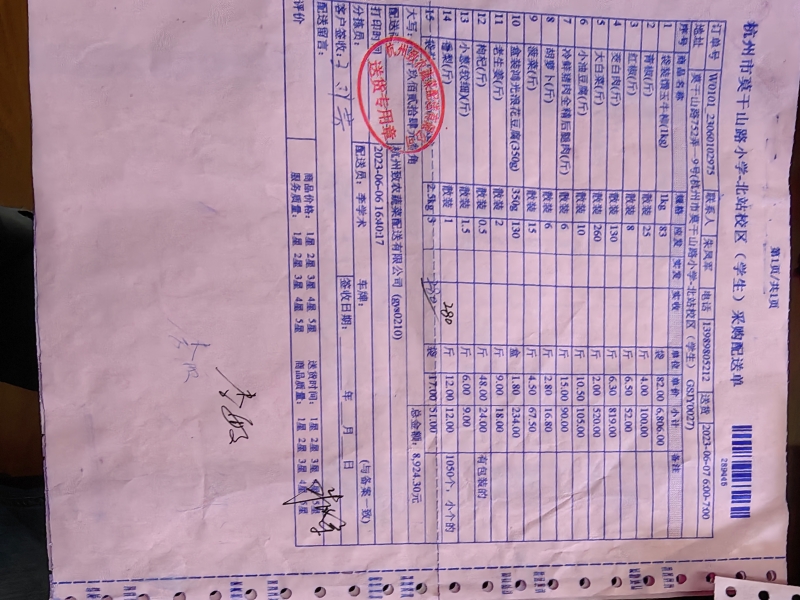 第1页/共1页
杭州市莫干山路小学-北站校区（学生）采购配送单
289448
订单号 W0101_23060102975 联系人 朱凤军 电话 13989805212 送货 2023-06-07 6:00-7:00
地址 莫干山路752弄一9号(杭州市莫干山路小学-北站校区（学生） GSTY0027)
序号 商品名称 规格 应发 实发 实收 单位 单价 小计 备注
1 袋装 1kg 83 袋 82.00 6,806.00
2 青椒(斤) 散装 25 斤 4.00 100.00
3 红椒(斤) 散装 8 斤 6.50 52.00
4 茭白肉(斤) 散装 130 斤 6.30 819.00
5 大白菜(斤) 散装 260 斤 2.00 520.00
6 小油豆腐(斤) 散装 10 斤 10.50 105.00
7 冷鲜猪肉全精后腿肉(斤) 散装 6 斤 15.00 90.00
8 胡萝卜(斤) 散装 6 斤 2.80 16.80
9 菠菜(斤) 散装 15 斤 4.50 67.50
10 盒装鸿光浪花豆腐(350g) 350g 130 盒 1.80 234.00
11 老生姜(斤) 散装 2 斤 9.00 18.00
12 枸杞(斤) 散装 0.5 斤 48.00 24.00 有包装的
13 小葱(较细)(斤) 散装 1.5 斤 6.00 9.00
14 香梨(斤) 散装 1 280 斤 12.00 12.00 1050个，小个的
15 袋装 2.5kg 3 袋 17.00 51.00
大写： 玖佰贰拾肆元 角 总金额：8,924.30元
配送 杭州致农蔬菜配送有限公司 (gys0210) (与备案一致)
打印时间 2023-06-06 16:40:17
送货专用章
分拣员： 配送员：李学术 车牌：
客户签收： 签收日期： 年 月 日
配送留言：
评价 商品价格：1星 2星 3星 4星 5星 送货时间：1星 2星 3星
服务质量：1星 2星 3星 4星 5星 商品质量：1星 2星 3星 4星 5星